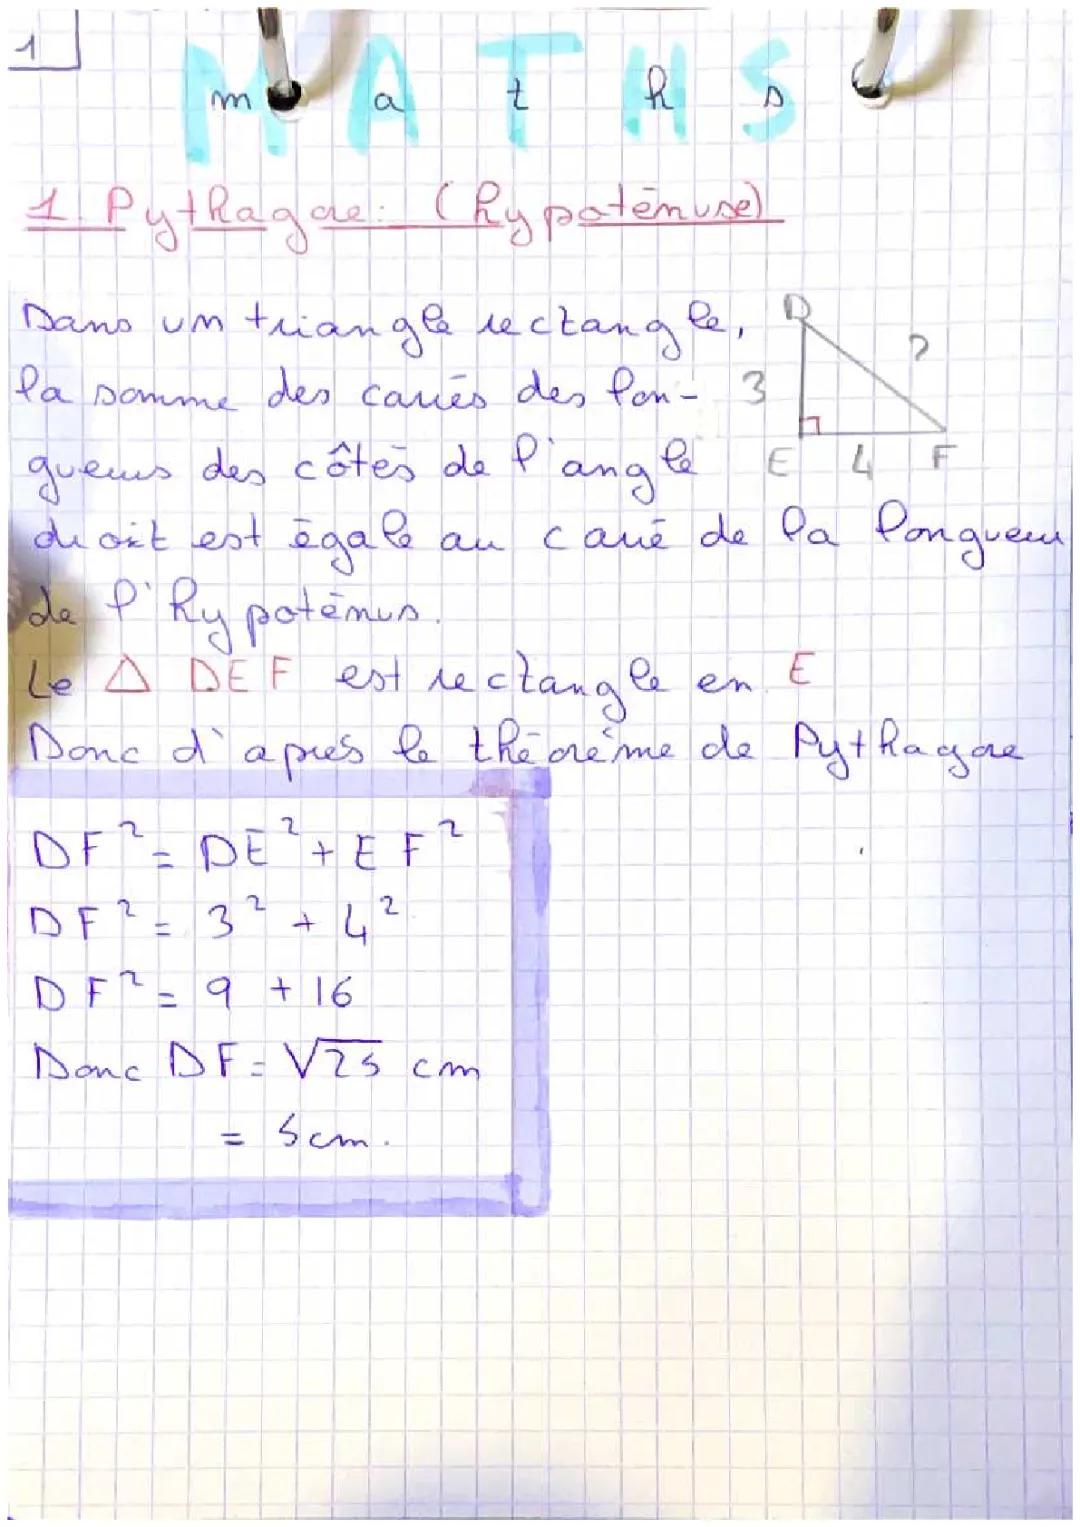 1
MATHS
m a t h s
1. Pythagore: (hypoténuse)
Dans un triangle rectangle,
la somme des carrés des lon-
gueurs des côtés de l'angle
droit est égale au carré de la longueur
de l'hypoténus.
D
?
3
E 4 F
Le △ DEF est rectangle en E
Donc d'aprés le théoréme de Pythagore
DF² = DE² + EF²
DF² = 3² + 4²
DF² = 9 + 16
Donc DF = √25 cm
= 5cm.